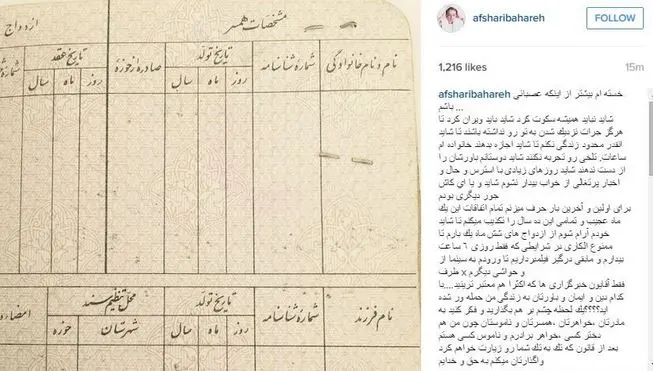 مشخصات همسر
ازدواج
نام و نام خانوادگی
شماره شناسنامه
تاریخ تولد
روز
ماه
سال
صادره از حوزهٔ
تاریخ عقد
روز
ماه
سال
نام فرزند
شماره شناسنامه
تاریخ تولد
روز
ماه
سال
محل تنظیم سند
شهرستان
حوزه
afsharibahareh
FOLLOW
1,216 likes
15m
afsharibahareh خسته ام بیشتر از اینکه عصبانی
باشم ...
شاید نباید همیشه سکوت کرد شاید باید ویران کرد تا
هرگز جرات نزدیك شدن به تو رو نداشته باشند تا شاید
انقدر محدود زندگی نکنم تا شاید اجازه بدهند خانواده ام
ساعات تلخی رو تجربه نکنند شاید دوستانم باورشان را
از دست ندهند شاید روزهای زیادی با استرس و حال و
اخبار پرتغالی از خواب بیدار نشوم شاید و یا ای کاش
جور دیگری بودم
برای اولین و آخرین بار حرف میزنم تمام اتفاقات این یك
ماه عجیب و تمامی این ده سال را تکذیب میکنم تا شاید
خودم آرام شوم از ازدواج های شش ماه یك بارم تا
ممنوع الکاری در شرایطی که فقط روزی ٦ ساعت
بیدارم و مابقی درگیر فیلمبرداریم تا ورودم به سینما از
طرف x و حواشی دیگرم
فقط آقایون خبرگزاری ها که اکثرا هم معتبر ترینید....با
کدام دین و ایمان و باورتان به زندگی من حمله ور شده
اید؟؟؟؟؟یك لحظه چشم بر هم بگذارید و فکر کنید به
مادرتان ،خواهرتان ،همسرتان و ناموستان چون من هم
دختر کسی ،خواهر برادرم و ناموس کسی هستم
بعد از قانون که تك به تك شما رو زیارت خواهم کرد
واگذارتان میکنم به حق و خدایم